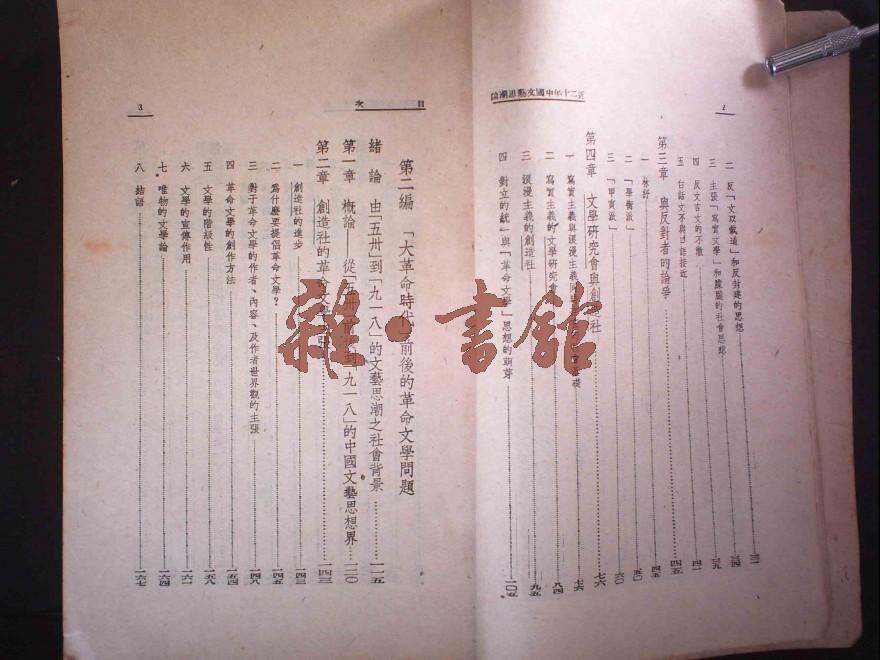 近二十年中國文藝思潮論
2
二 反「文以載道」和反封建的思想 三一
三 主張「寫實文學」和朦朧的社會思想 三九
四 反文言文的不徹 四一
五 白話文不與口語接近 四五
第三章 與反對者的論爭
一 林紓 四五
二 「學衡派」 五〇
三 「甲寅派」 六〇
第四章 文學研究會與創造社 七六
一 寫實主義與浪漫主義 七六
二 寫實主義的文學研究會 八四
三 浪漫主義的創造社 九五
四 對立的統一與「革命文學」思想的萌芽 一〇五
目 次
3
第二編 「大革命時代」前後的革命文學問題
緒論 由「五卅」到「九一八」的文藝思潮之社會背景 一一五
第一章 概論——從「五卅」前後到「九一八」的中國文藝思想界 一二〇
第二章 創造社的革命文學 一四三
一 創造社的進步 一四三
二 爲什麼要提倡革命文學? 一四五
三 對于革命文學的作者、內容、及作者世界觀的主張 一四八
四 革命文學的創作方法 一五四
五 文學的階級性 一五八
六 文學的宣傳作用 一六二
七 唯物的文學論 一六四
八 結語 一六七
雜·書館